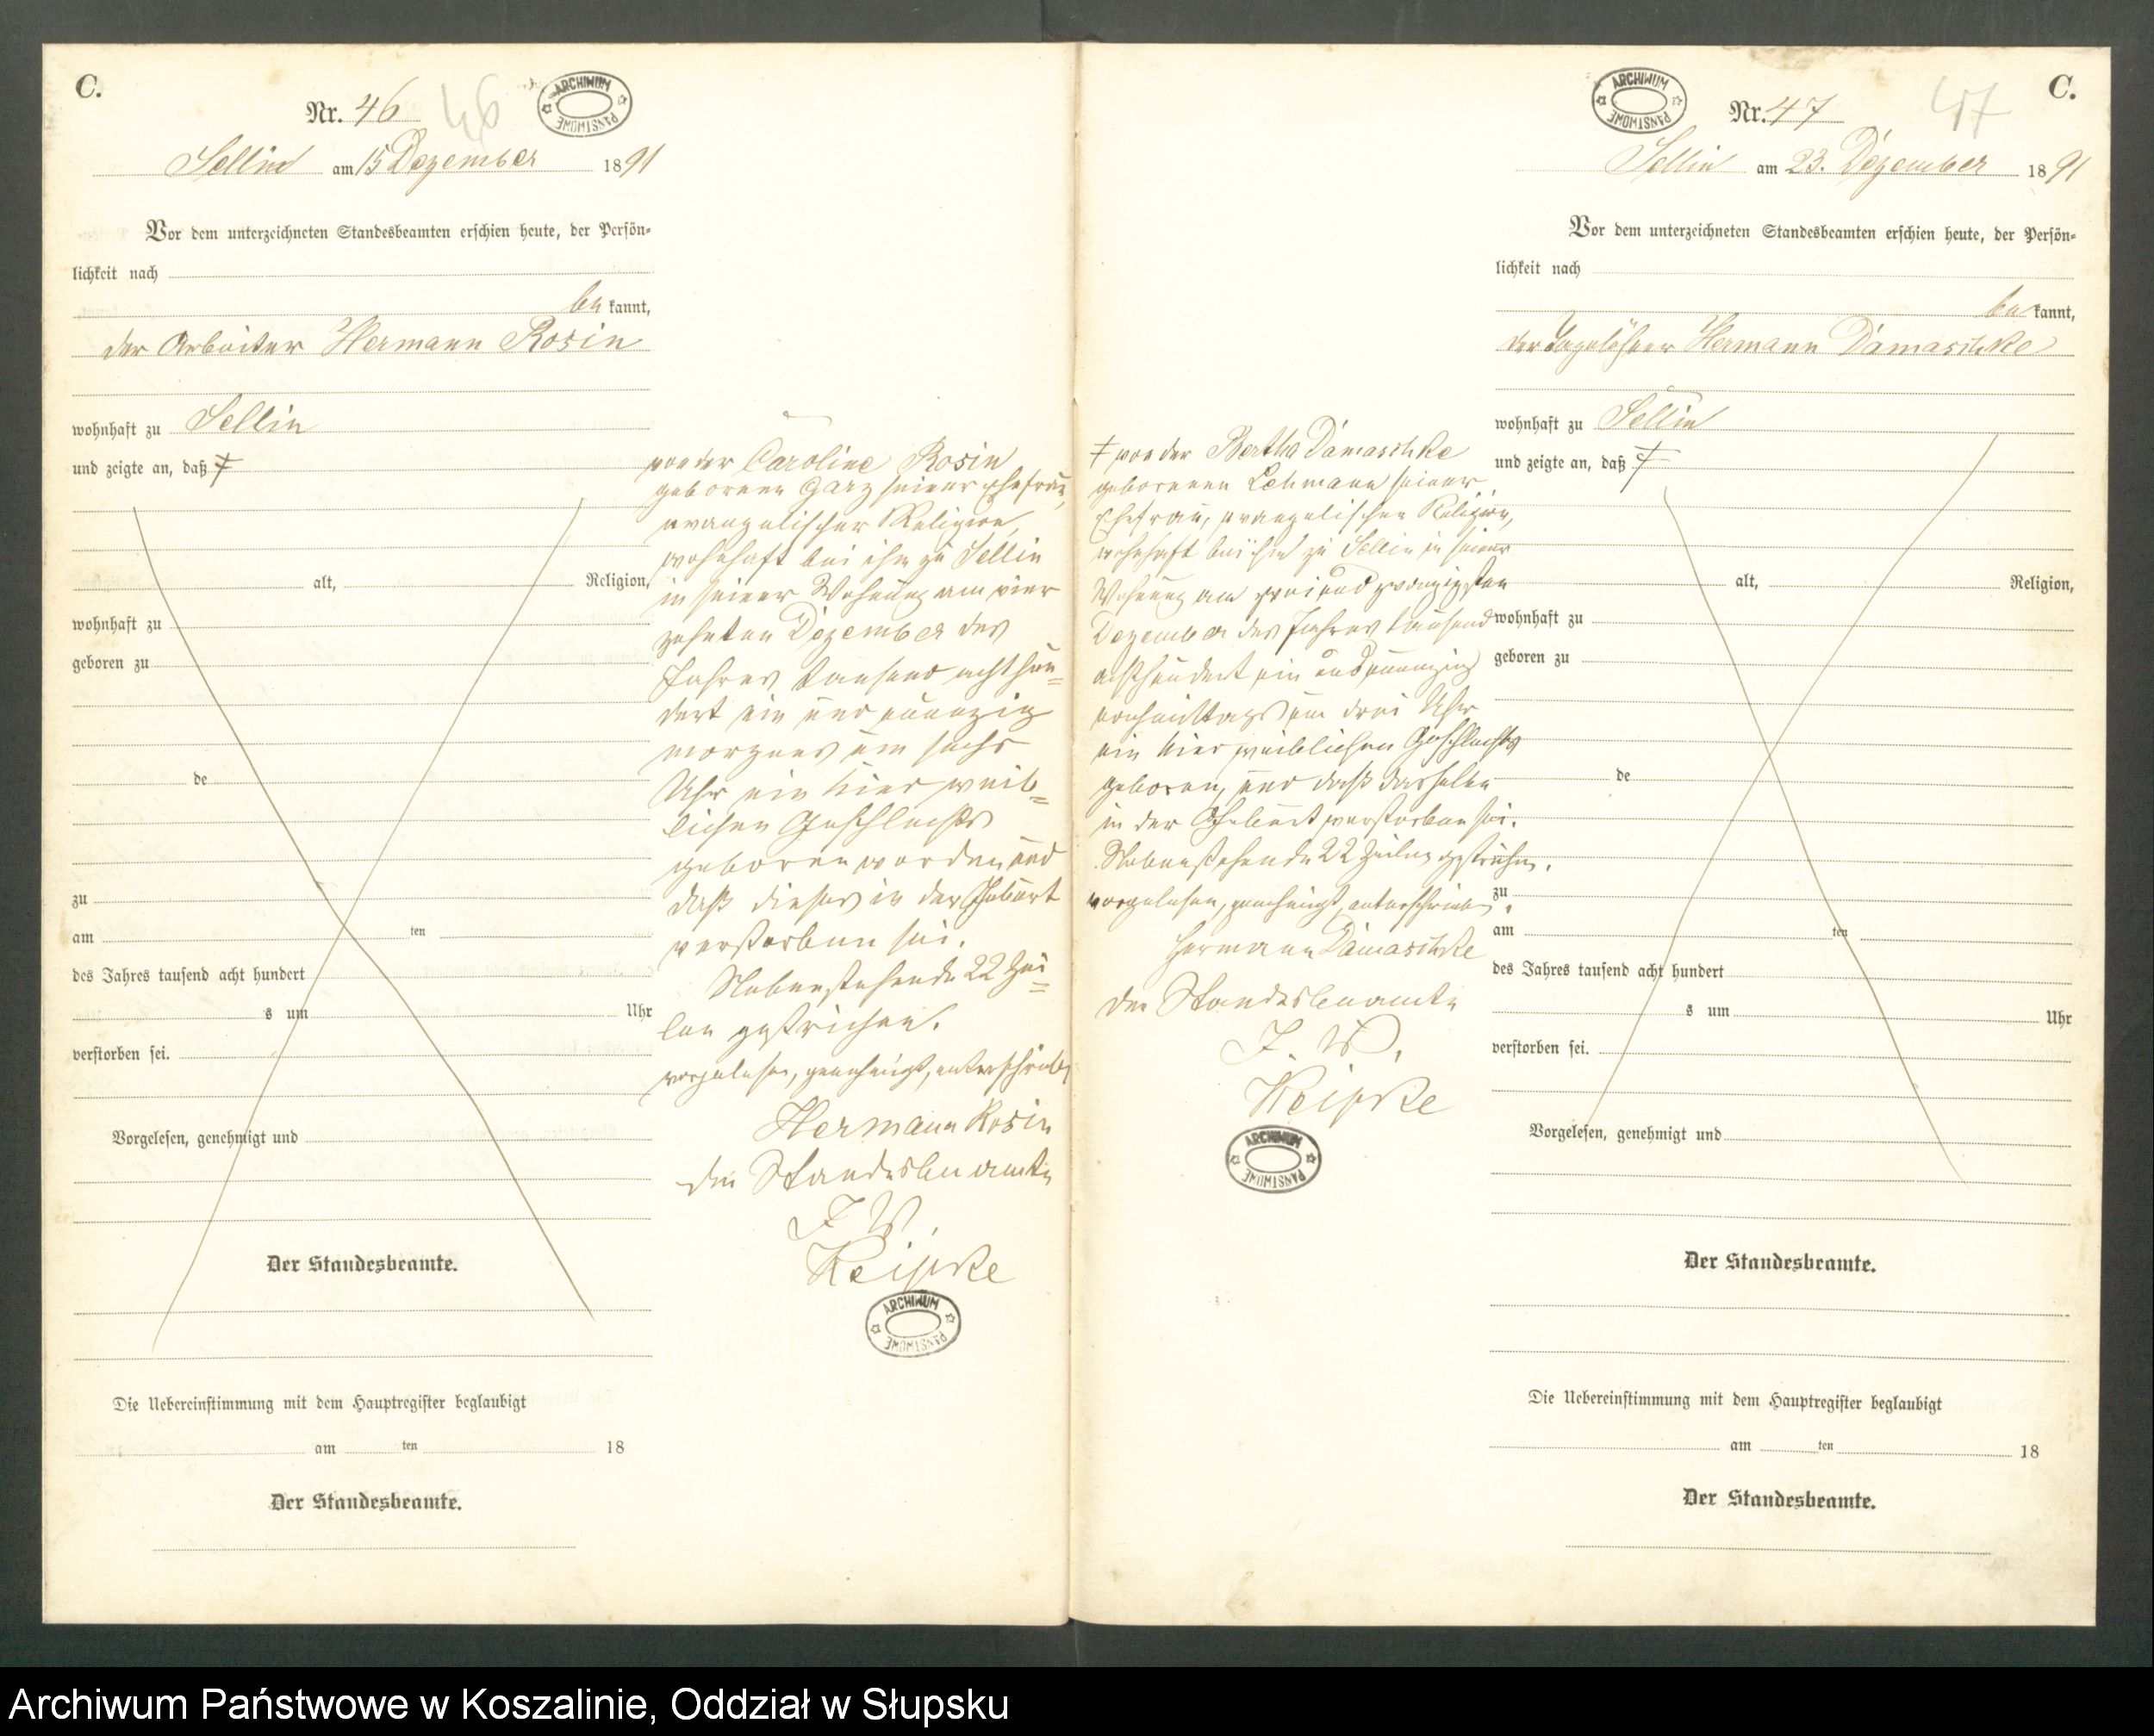 C.
Nr. 46
46
ARCHIWUM PAŃSTWOWE
Sellin am 15 Dezember 1891
Vor dem unterzeichneten Standesbeamten erschien heute, der Persön-
lichkeit nach
be kannt,
der Arbeiter Hermann Rosin
wohnhaft zu Sellin
und zeigte an, daß ‡
alt, Religion,
wohnhaft zu
geboren zu
de
zu
am ten
des Jahres tausend acht hundert
s um Uhr
verstorben sei.
Vorgelesen, genehmigt und
Der Standesbeamte.
Die Uebereinstimmung mit dem Hauptregister beglaubigt
am ten 18
Der Standesbeamte.
von der Caroline Rosin
geborenen Garz seiner Ehefrau,
evangelischer Religion,
wohnhaft bei ihm zu Sellin
in seiner Wohnung am vier
zehnten Dezember des
Jahres tausend achthun=
dert ein und neunzig
morgens um sechs
Uhr ein Kind weib=
lichen Geschlechts
geboren worden und
daß dieses in der Geburt
verstorben sei.
Nebenstehende 22 Zei=
len gestrichen.
vorgelesen, genehmigt, unterschrieben
Hermann Rosin
der Standesbeamte
J. V.
Keipke
ARCHIWUM PAŃSTWOWE
ARCHIWUM PAŃSTWOWE
Nr. 47
47
C.
Sellin am 23. Dezember 1891
Vor dem unterzeichneten Standesbeamten erschien heute, der Persön-
lichkeit nach
be kannt,
der Tagelöhner Hermann Damaschke
wohnhaft zu Sellin
und zeigte an, daß ‡
alt, Religion,
wohnhaft zu
geboren zu
de
zu
am ten
des Jahres tausend acht hundert
s um Uhr
verstorben sei.
Vorgelesen, genehmigt und
Der Standesbeamte.
Die Uebereinstimmung mit dem Hauptregister beglaubigt
am ten 18
Der Standesbeamte.
‡ von der Bertha Damaschke
geborenen Lehmann seiner
Ehefrau, evangelischer Religion,
wohnhaft bei ihm zu Sellin in seiner
Wohnung am zwei und zwanzigsten
Dezember des Jahres tausend
achthundert ein und neunzig
nachmittags um drei Uhr
ein Kind weiblichen Geschlechts
geboren, und daß dasselbe
in der Geburt verstorben sei.
Nebenstehende 22 Zeilen gestrichen.
vorgelesen, genehmigt, unterschrieben.
Hermann Damaschke
Der Standesbeamte
J. V.
Keipke
ARCHIWUM PAŃSTWOWE
Archiwum Państwowe w Koszalinie, Oddział w Słupsku